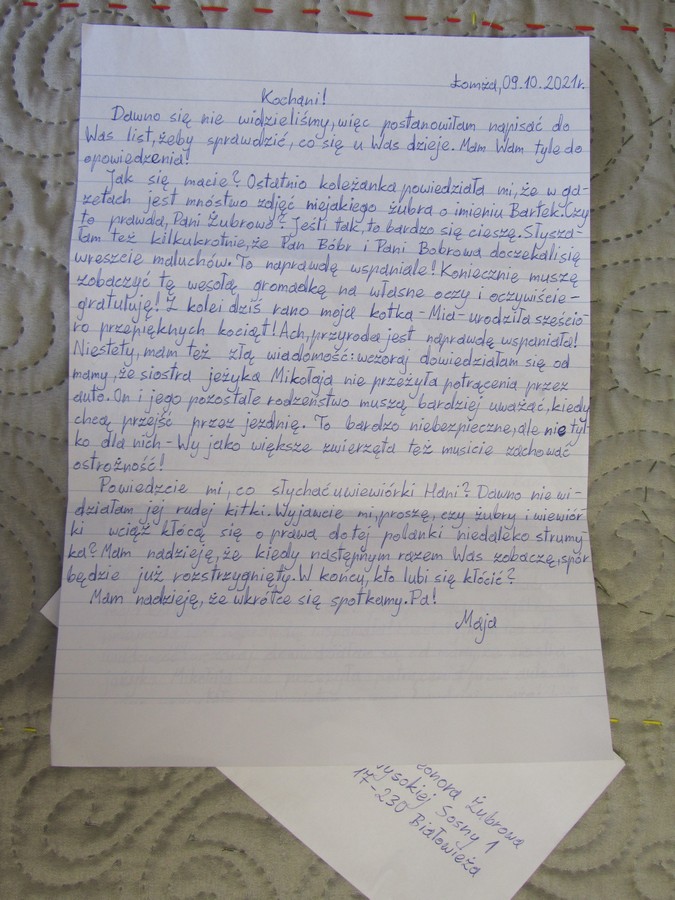 Łomża, 09.10.2021r.
Kochani!
Dawno się nie widzieliśmy, więc postanowiłam napisać do
Was list, żeby sprawdzić, co się u Was dzieje. Mam Wam tyle do
opowiedzenia!
Jak się macie? Ostatnio koleżanka powiedziała mi, że w ga-
zetach jest mnóstwo zdjęć niejakiego żubra o imieniu Bartek. Czy
to prawda, Pani Żubrowo? Jeśli tak, to bardzo się cieszę. Słysza-
łam też kilkukrotnie, że Pan Bóbr i Pani Bobrowa doczekali się
wreszcie maluchów. To naprawdę wspaniale! Koniecznie muszę
zobaczyć tę wesołą gromadkę na własne oczy i oczywiście -
gratuluję! Z kolei dziś rano moja kotka - Mia - urodziła sześcio-
ro przepięknych kociąt! Ach, przyroda jest naprawdę wspaniała!
Niestety, mam też złą wiadomość: wczoraj dowiedziałam się od
mamy, że siostra jeżyka Mikołaja nie przeżyła potrącenia przez
auto. On i jego pozostałe rodzeństwo muszą bardziej uważać, kiedy
chcą przejść przez jezdnię. To bardzo niebezpieczne, ale nie tyl-
ko dla nich - Wy jako większe zwierzęta też musicie zachować
ostrożność!
Powiedzcie mi, co słychać u wiewiórki Hani? Dawno nie wi-
działam jej rudej kitki. Wyjawcie mi, proszę, czy żubry i wiewiór-
ki wciąż kłócą się o prawa do tej polanki niedaleko strumy-
ka? Mam nadzieję, że kiedy następnym razem Was zobaczę, spór
będzie już rozstrzygnięty. W końcu, kto lubi się kłócić?
Mam nadzieję, że wkrótce się spotkamy. Pa!
Maja
Żubrowa
Wysokiej Sosny 1
17-230 Białowieża